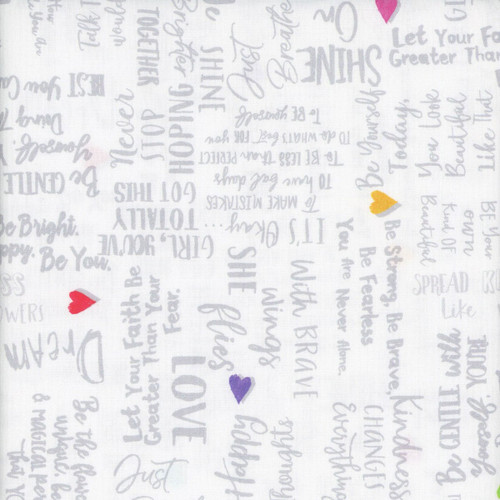 Let Your
Greater Than
SHINE
On
Just
Breathe
SHINE
Brighter
TOGETHER
Never
STOP
HOPING
BEST
yourself.
Be GENTLE
Be Yourself
Today.
You Look
Beautiful
Like That
IT'S Okay...
To MAKE MISTAKES
To have bad days
To BE LESS than PERFECT
To do WHAT'S best FOR you
To BE yourself
GIRL, YOU'VE
TOTALLY
GOT THIS
Be Bright.
Be You.
Be Strong, Be Brave,
Be Fearless
You Are Never Alone.
own
Kind OF
Beautiful
SPREAD
Like
SHE
flies
With BRAVE
wings
Let Your Faith Be
Greater Than Your
Fear.
LOVE
DREAM
Be the
unique,
& MAGICAL
Just
happy
thoughts
Kindness
CHANGES
Everything
Be GENTLE with
YOU'RE